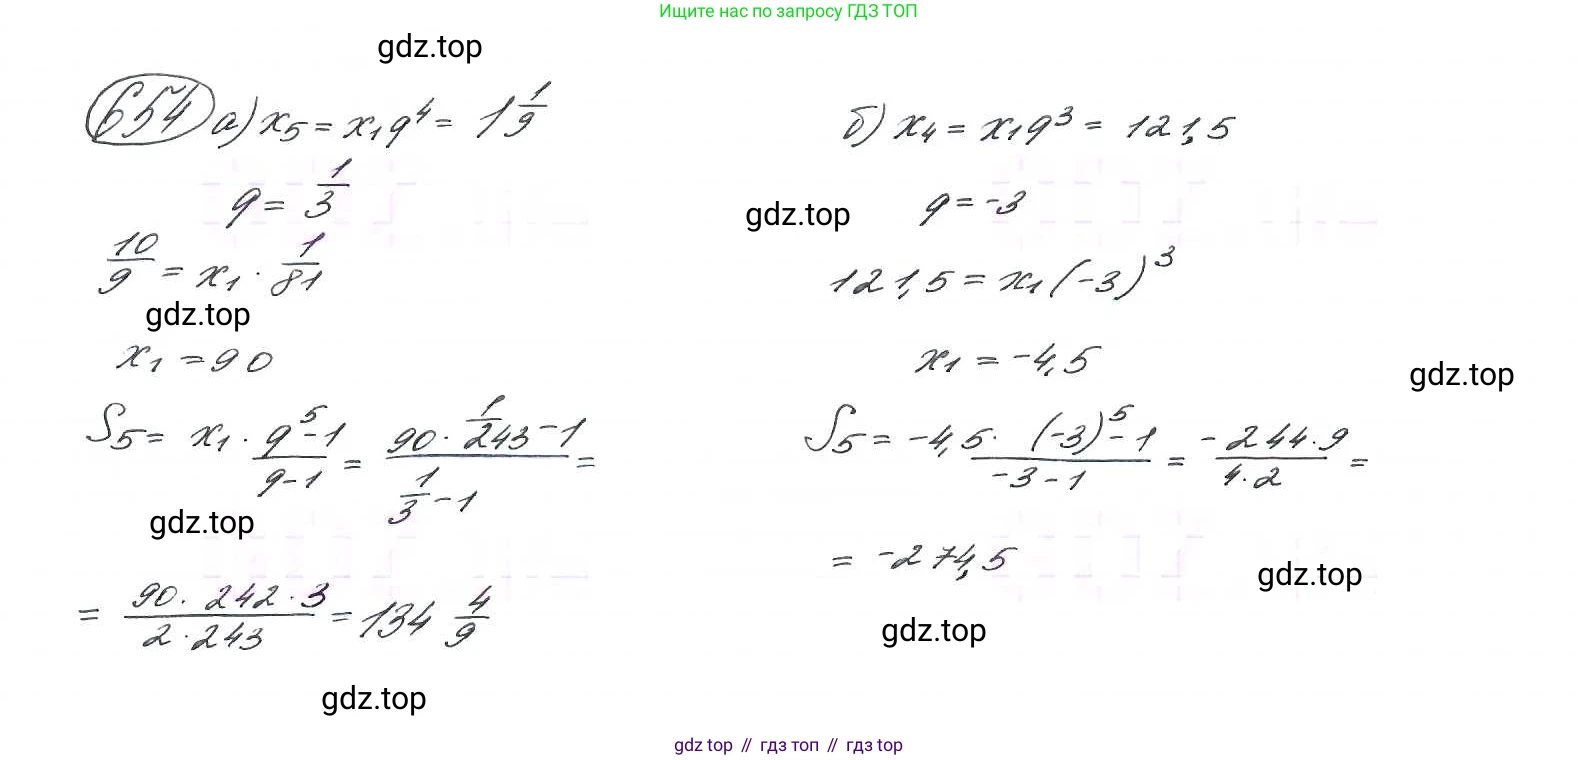 Ищите нас по запросу ГДЗ ТОП
gdz.top
654 а) x₅ = x₁q⁴ = 1 1/9
q = 1/3
10/9 = x₁ · 1/81
gdz.top
x₁ = 90
S₅ = x₁ · (q⁵-1)/(q-1) = (90 · 1/243 - 1)/(1/3 - 1) =
gdz.top
= (90 · 242 · 3)/(2 · 243) = 134 4/9
gdz.top
б) x₄ = x₁q³ = 121,5
gdz.top
q = -3
121,5 = x₁(-3)³
x₁ = -4,5
gdz.top
S₅ = -4,5 · ((-3)⁵ - 1)/(-3 - 1) = (-244 · 9)/(4 · 2) =
= -274,5
gdz.top
gdz.top
gdz top // гдз топ // гдз top